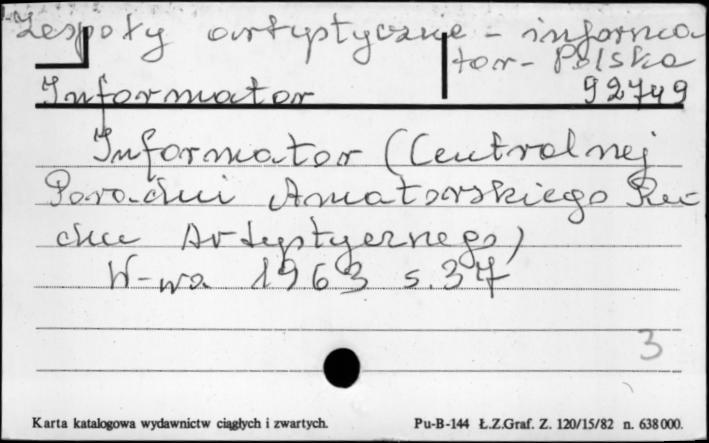 Zespoły artystyczne - informa
tor - Polska
Informator 92749
Informator (Centralnej
Poradni Amatorskiego Ru-
chu Artystycznego)
W-wa 1963 s. 37
3
Karta katalogowa wydawnictw ciągłych i zwartych. Pu-B-144 Ł.Z.Graf. Z. 120/15/82 n. 638000.